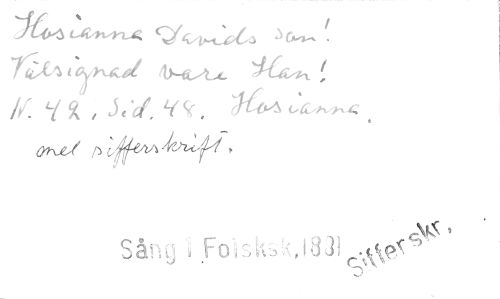 Hosianna Davids son!
Välsignad vare Han!
N. 42, Sid. 48. Hosianna.
mel sifferskrift.
Sång i Folksk, 1831
Sifferskr.